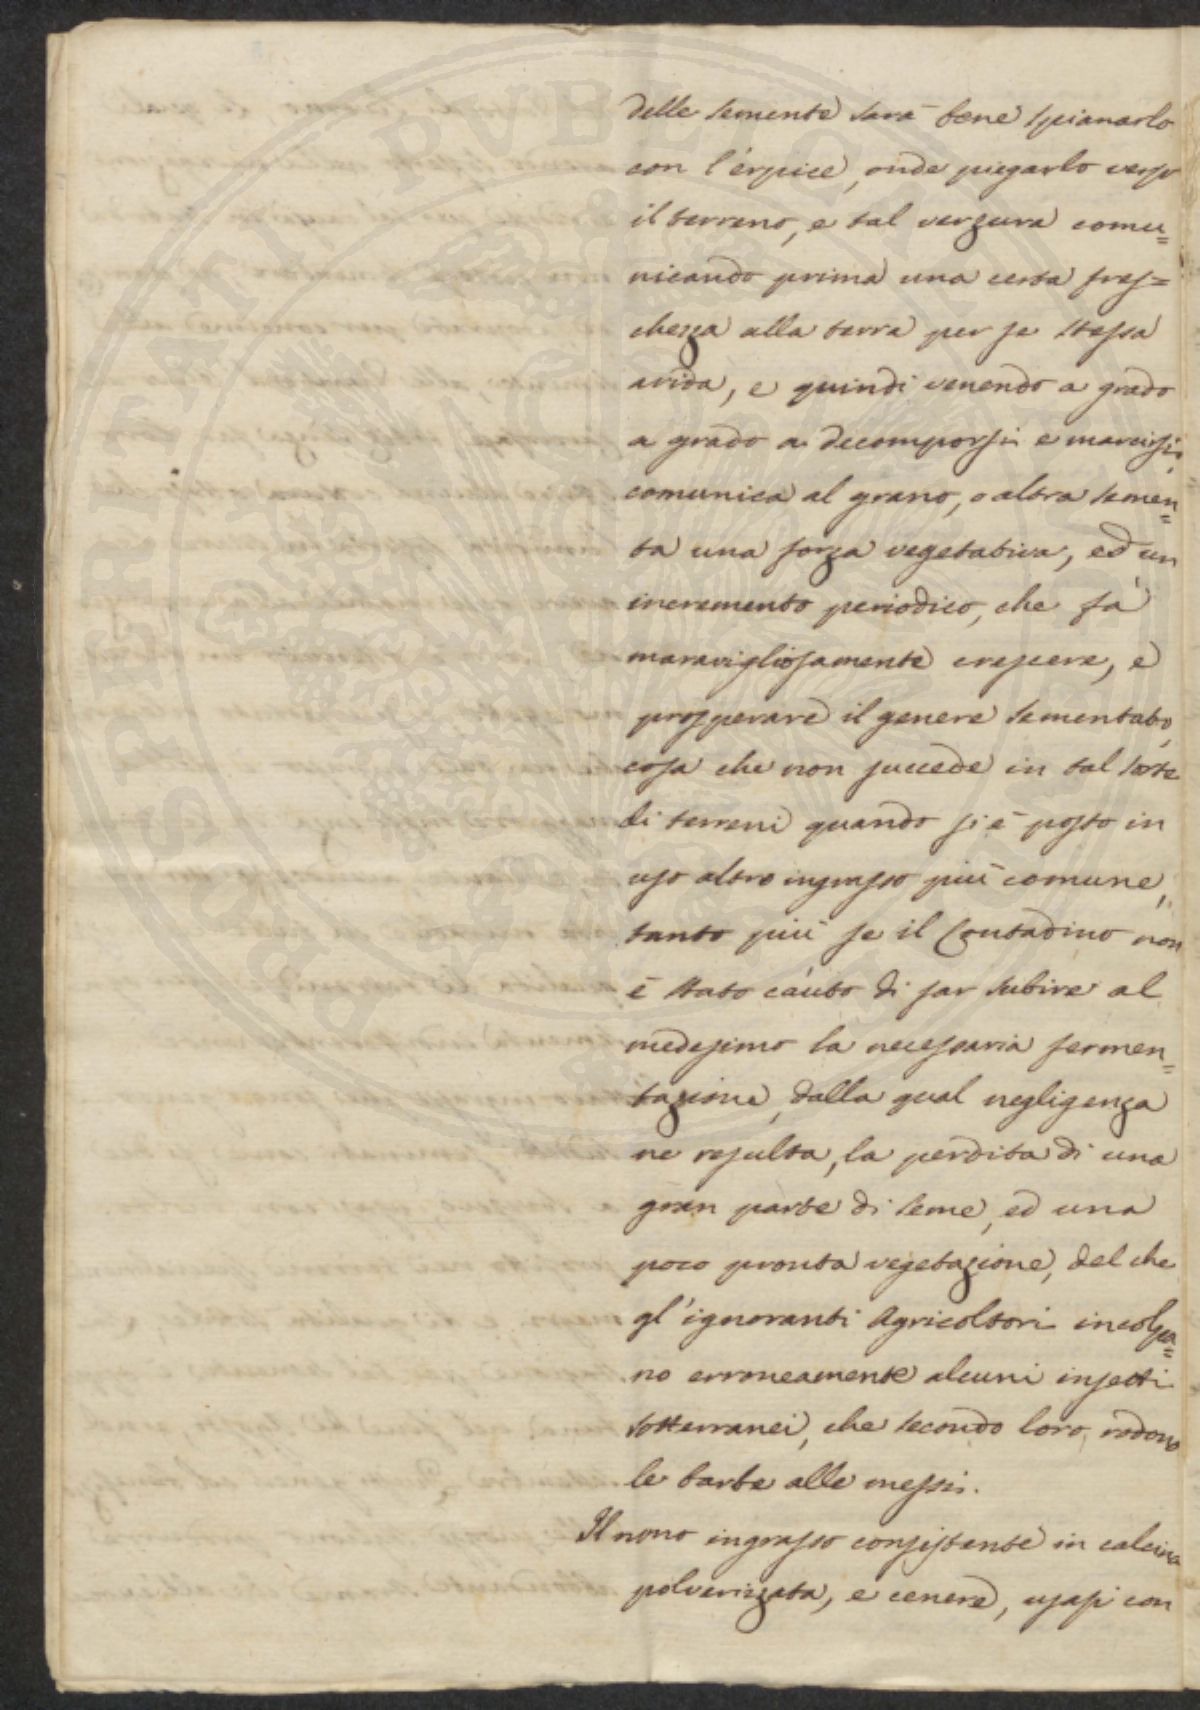 delle semente sarà bene spianarlo
con l'érpice, onde piegarlo verso
il terreno, e tal verzura comu=
nicando prima una certa fres=
chezza alla terra per se stessa
arida, e quindi venendo a grado
a grado a decomporsi e marcirsi,
comunica al grano, o altra semen=
ta una forza vegetativa, ed un
incremento periodico, che fà
maravigliosamente crescere, e
prosperare il genere sementato,
cosa che non succede in tal sorte
di terreni quando si è posto in
uso altro ingrasso più comune,
tanto più se il Contadino non
è stato cáuto di far subire al
medesimo la necessaria fermen=
tazione, dalla qual negligenza
ne resulta, la perdita di una
gran parte di seme, ed una
poco pronta vegetazione, del che
gl'ignoranti Agricoltori incolpa=
no erroneamente alcuni insetti
sotterranei, che secondo loro, rodono
le barbe alle messi.
Il nono ingrasso consistente in calcina
polverizzata, e cenere, usasi con
PVBLIC